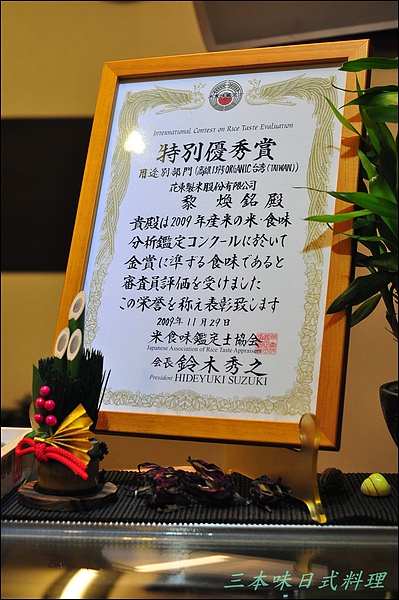 International Contest on Rice Taste Evaluation
特別優秀賞
用途別部門(高雄139号ORGANIC台湾(TAIWAN))
花東製米股份有限公司
黎 煥銘 殿
貴殿は2009年産米の米・食味
分析鑑定コンクールに於いて
金賞に準ずる食味であると
審査員評価を受けました
この栄誉を称え表彰致します
2009年11月29日
米食味鑑定士協会
Japanese Association of Rice Taste Appraisers
会長 鈴木秀之
President HIDEYUKI SUZUKI
三本味日式料理